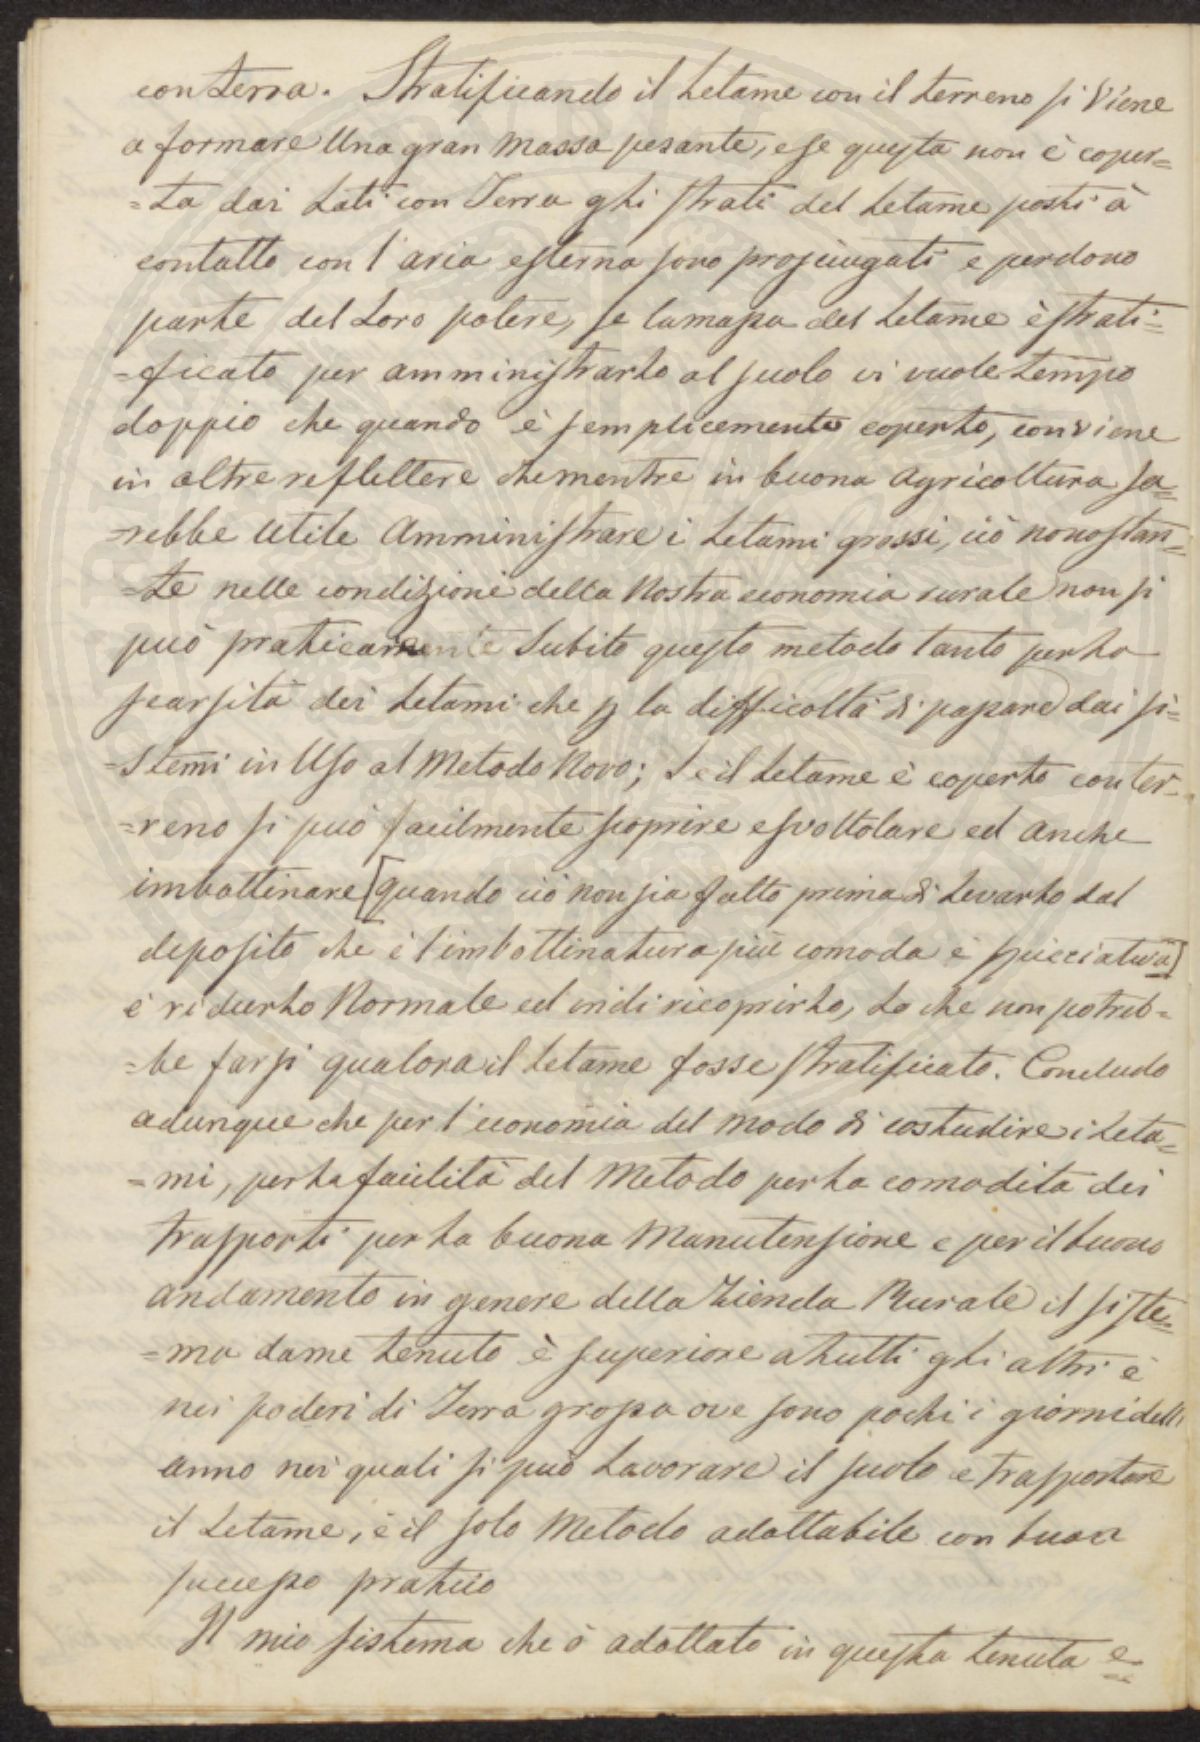 con terra. Stratificando il letame con il terreno si viene
a formare una gran massa pesante, e se questa non è coper=
=ta dai lati con Terra gli strati del letame posti à
contatto con l'aria esterna sono prosciugati e perdono
parte del loro potere, se la massa del letame è strati=
=ficato per amministrarlo al suolo vi vuole tempo
doppio che quando è semplicemente coperto, conviene
in oltre reflettere che mentre in buona agricoltura sa=
=rebbe utile amministrare i letami grossi, ciò nonostan=
=te nelle condizioni della nostra economia rurale non si
può praticamente subito questo metodo tanto per la
scarsità dei letami che p la difficoltà di passare dai si=
=stemi in uso al metodo novo; se il letame è coperto con ter=
=reno si può facilmente scoprire e svoltolare ed anche
imbottinare [quando ciò non sia fatto prima di levarlo dal
deposito che è l'imbottinatura più comoda è spicciativa]
è ridurlo normale ed indi ricoprirlo, lo che non potreb=
=be farsi qualora il letame fosse stratificato. Concludo
adunque che per l'economia del modo di costudire i leta=
=mi, per la facilità del metodo per la comodità dei
trasporti per la buona manutensione e per il buono
andamento in genere della Zienda Rurale il siste=
=ma da me tenuto è superiore a tutti gli altri è
nei poderi di Terra grossa ove sono pochi i giorni dell'
anno nei quali si può lavorare il suolo e trasportare
il letame, è il solo metodo adottabile con buon
successo pratico
Il mio sistema che ò adottato in questa tenuta e